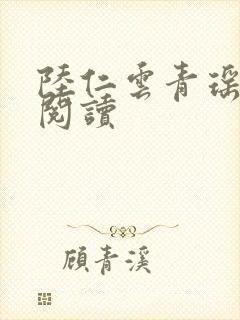 陸仁雲青瑤
閱讀
顧青溪